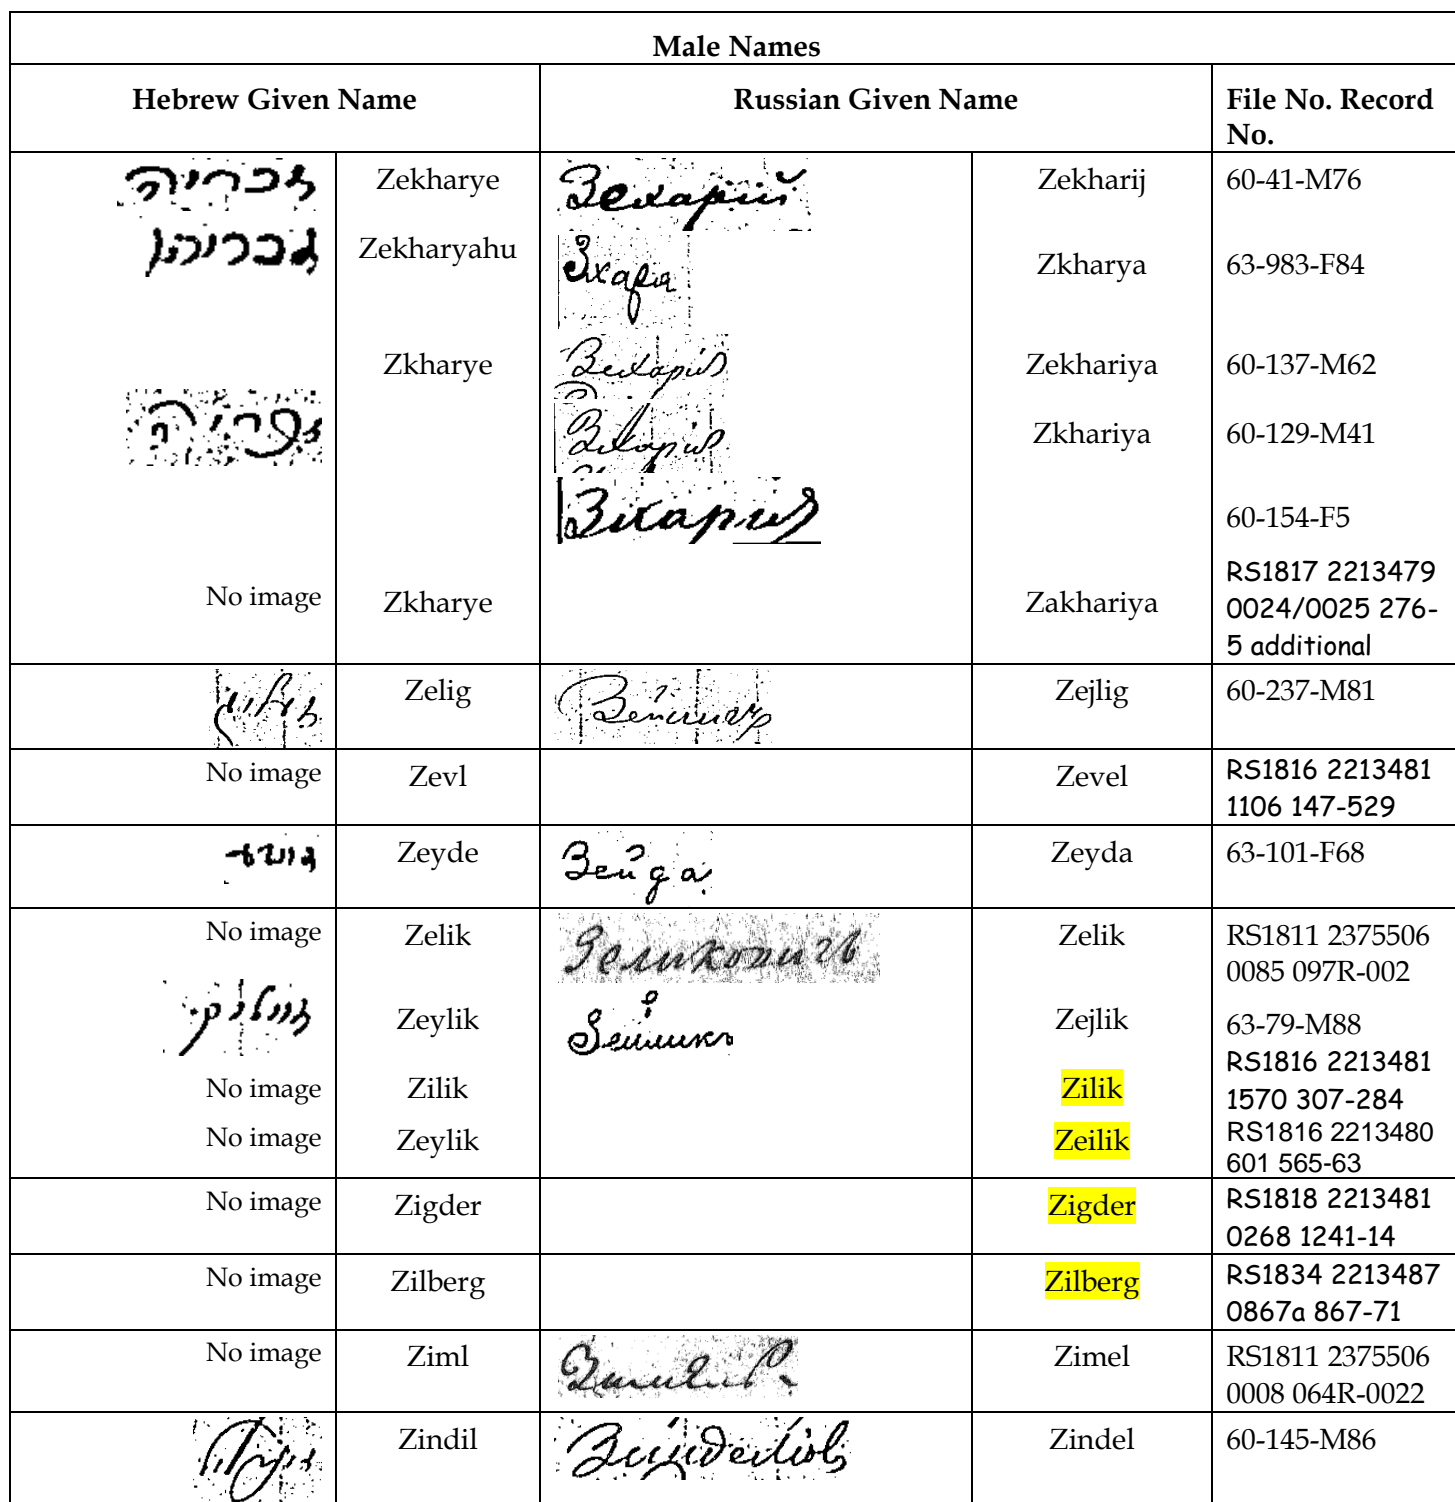 Male Names
Hebrew Given Name Russian Given Name File No. Record
No.
זכריה Zekharye Зехарій Zekharij 60-41-M76
זכריהו Zekharyahu Зхаря Zkharya 63-983-F84
Zkharye Зехарія Zekhariya 60-137-M62
זכריה Зхарія Zkhariya 60-129-M41
Зхария 60-154-F5
No image Zkharye Zakhariya RS1817 2213479
0024/0025 276-
5 additional
זעליג Zelig Зейлигъ Zejlig 60-237-M81
No image Zevl Zevel RS1816 2213481
1106 147-529
Zeyde Зейда Zeyda 63-101-F68
No image Zelik Зеликовичъ Zelik RS1811 2375506
0085 097R-002
זיילניק Zeylik Зейликъ Zejlik 63-79-M88
No image Zilik Zilik RS1816 2213481
1570 307-284
No image Zeylik Zeilik RS1816 2213480
601 565-63
No image Zigder Zigder RS1818 2213481
0268 1241-14
No image Zilberg Zilberg RS1834 2213487
0867a 867-71
No image Ziml Zimel RS1811 2375506
0008 064R-0022
Zindil Zindel 60-145-M86